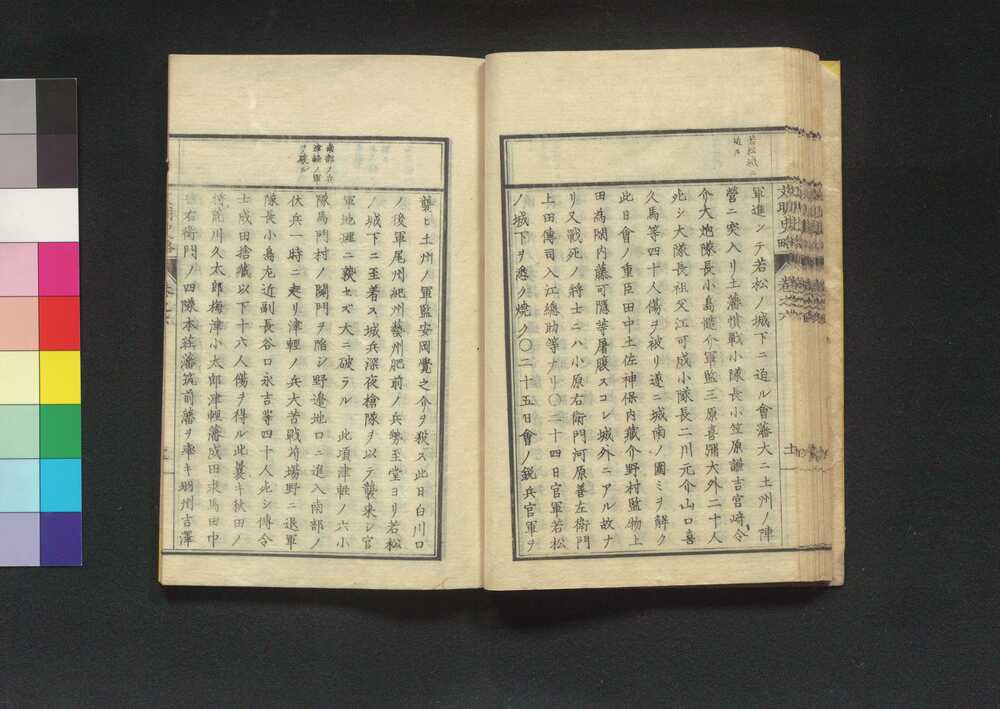 若松城ニ
迫ル
軍進ンテ若松ノ城下ニ迫ル會藩大ニ土州ノ陣
營ニ突入リ土藩憤戰小隊長小笠原謙吉宮崎令
介大炮隊長小島 介軍監三原喜彌大外二十人
死シ大隊長祖父江可成小隊長二川元介山口喜
久馬等四十人傷ヲ被リ遂ニ城南ノ圍ミヲ解ク
此日會ノ重臣田中土佐神保内藏介野村監物上
田 内藤可隱等屠腹スコレ城外ニアル故ナ
リ又戰死ノ將士ニハ小原右衛門河原善左衛門
上田傳司入江總助等ナリ〇二十四日官軍若松
ノ城下ヲ悉ク燒ク〇二十五日會ノ鋭兵官軍ヲ
近明史略 巻之六
十
南部ノ兵
津輕ノ軍
ヲ破ル
襲ヒ土州ノ軍監安岡覺之介ヲ殺ス此日白川口
ノ後軍尾州紀州藝州肥前ノ兵 至堂ヨリ若松
ノ城下ニ至着ス城兵深夜槍隊ヲ以テ襲来シ官
軍地理ニ セズ大ニ破ラル 此項津軽ノ六小
隊馬門村ノ關門ヲ陥シ野邊地口ニ進入南部ノ
伏兵一時ニ起リ津輕ノ兵大苦戰 場野ニ退軍
隊長小島左近副長谷口永吉等四十人死シ傳令
士成田捨藏以下十六人傷ヲ得ル此 キ秋田ノ
 龍川久太郎梅津小太郎津輕藩成田求馬田中
 右衛門ノ四隊本荘藩筑前藩ヲ率キ 州吉澤